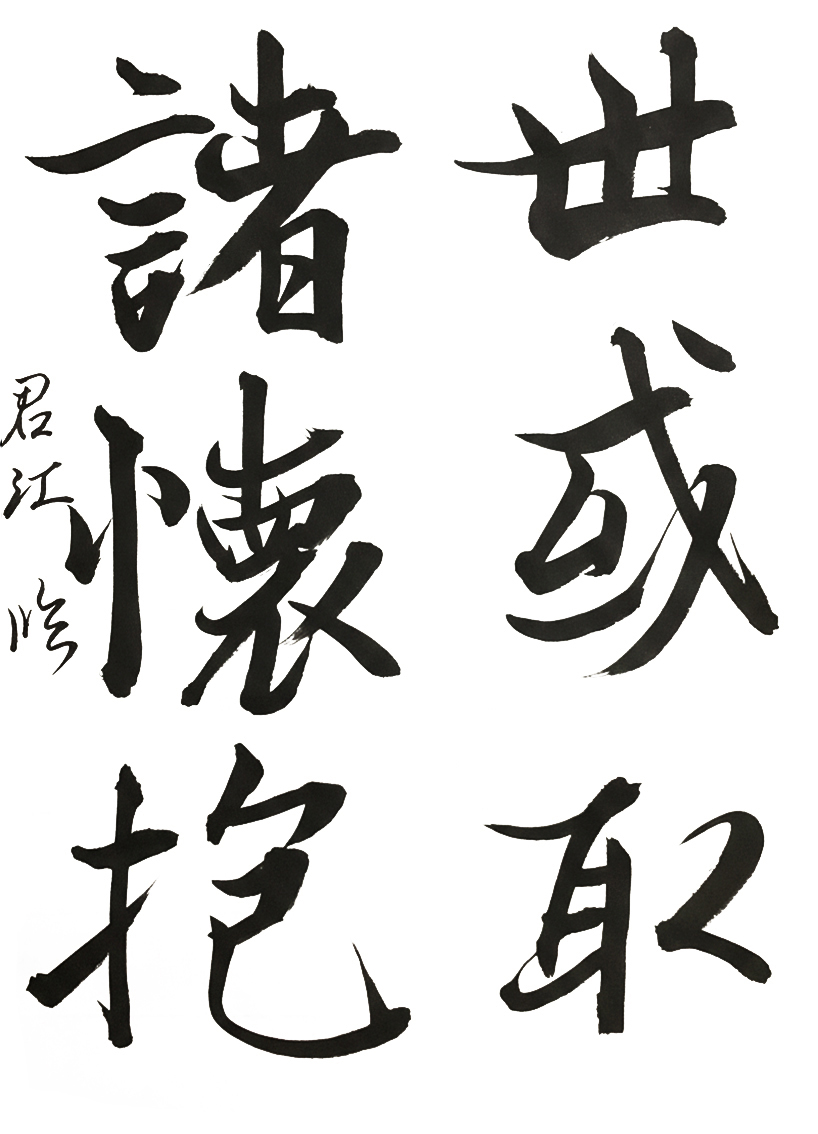 世或取
諸懷抱
君江臨